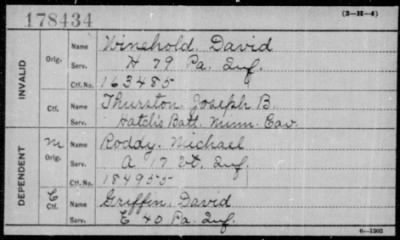 178434 (3—H—4)
INVALID
Orig. Name Winehold, David
Serv. H 79 Pa. Inf.
Ctf. No. 163485
Ctf. Name Thurston, Joseph B.
Serv. Hatch's Batt. Minn. Cav.
DEPENDENT
M Orig. Name Roddy, Michael
Serv. A 17 Vt. Inf.
Ctf. No. 184955
Ctf. Name Griffin, David
Serv. E 40 Pa. Inf.